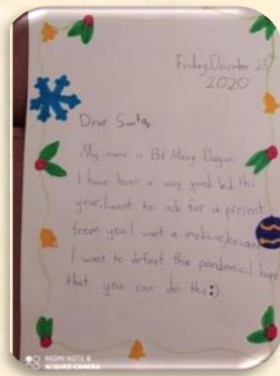 Friday, December 25
2020
Dear Santa,
My name is Elif Meray
I have been a very good kid this
year. I want to ask for a present
from you. I want a medicine, because
I want to defeat this pandemic. I hope
that you can do this :)
REDMI NOTE 8
AI QUAD CAMERA